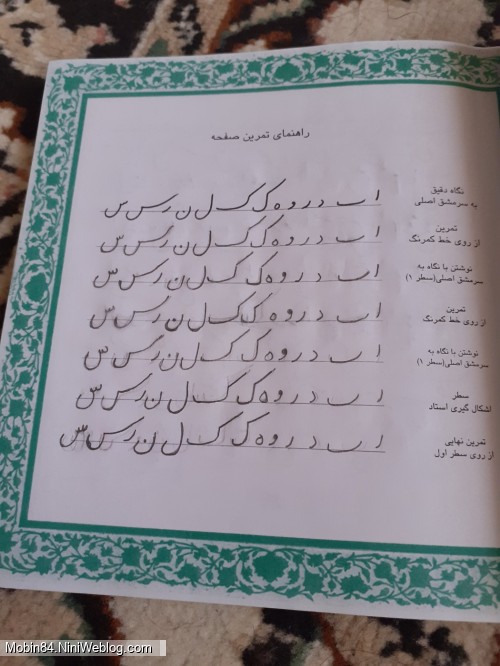 راهنمای تمرین صفحه
نگاه دقیق
به سرمشق اصلی
ا ب د ر و ه ک ک ل ن ر س س
تمرین
از روی خط کمرنگ
ا ب د ر و ه ک ک ل ن ر س س
نوشتن با نگاه به
سرمشق اصلی(سطر ۱)
ا ب د ر و ه ک ک ل ن ر س س
تمرین
از روی خط کمرنگ
ا ب د ر و ه ک ک ل ن ر س س
نوشتن با نگاه به
سرمشق اصلی(سطر ۱)
ا ب د ر و ه ک ک ل ن ر س س
سطر
اشکال گیری استاد
ا ب د ر و ه ک ک ل ن ر س س
تمرین نهایی
از روی سطر اول
ا ب د ر و ه ک ک ل ن ر س س
Mobin84.NiniWeblog.com